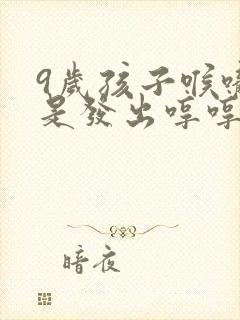 9歲孩子喉嚨
是發出哼哼
暗夜